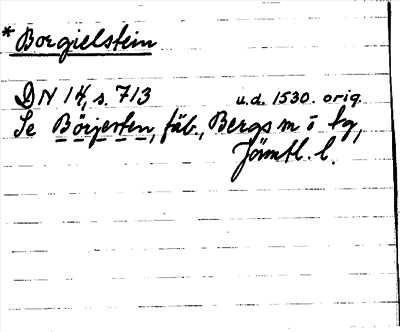 * Borgielstein
DN 14, s. 713 u.d. 1530. orig.
Se Börjesten, fäb., Bergs sn o tg,
Jämtl. l.